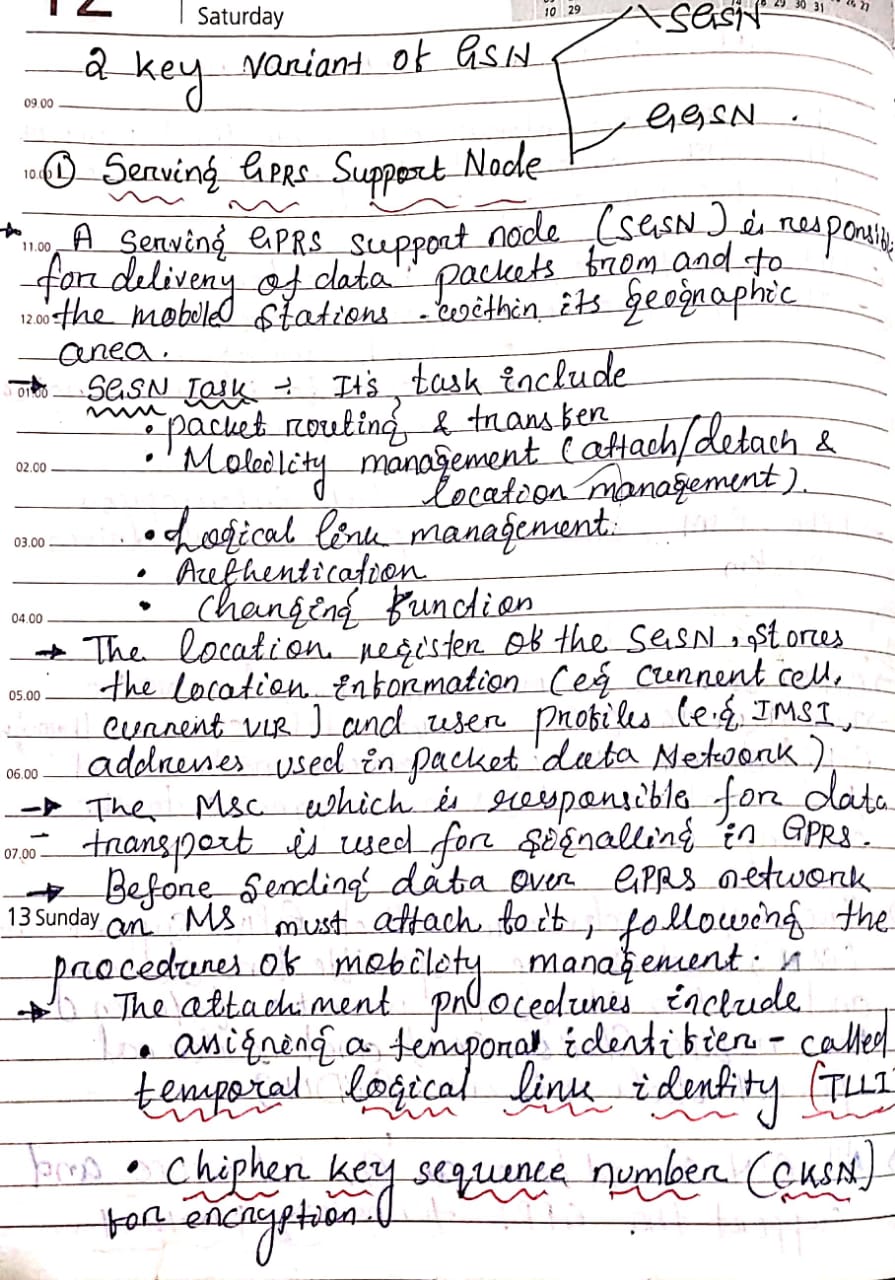 12
Saturday
10 29
29 30 31
2 key variant of GSN
SGSN
GGSN .
09.00
10.00 ① Serving GPRS Support Node
11.00 A Serving GPRS support node (SGSN) is responsible
for delivery of data packets from and to
12.00 the mobile stations within its geographic
area.
01.00 → SGSN Task ÷ It's task include
• packet routing & transfer
• Mobility management (attach/detach &
02.00
location management).
03.00 • Logical link management.
• Authentication
• Changing function
04.00
→ The location register of the SGSN, stores
05.00 the location information (eg current cell,
current VLR) and user profiles (e.g IMSI,
06.00 addresses used in packet data Network)
→ The Msc which is responsible for data
07.00 transport is used for signalling in GPRS.
→ Before Sending data over GPRS network
13 Sunday an MS must attach to it, following the
procedures of mobility management.
→ The attachment procedures include
• assigning a temporal identifier - called
temporal logical link identity (TLLI
• Chipher key sequence number (CKSN)
for encryption.